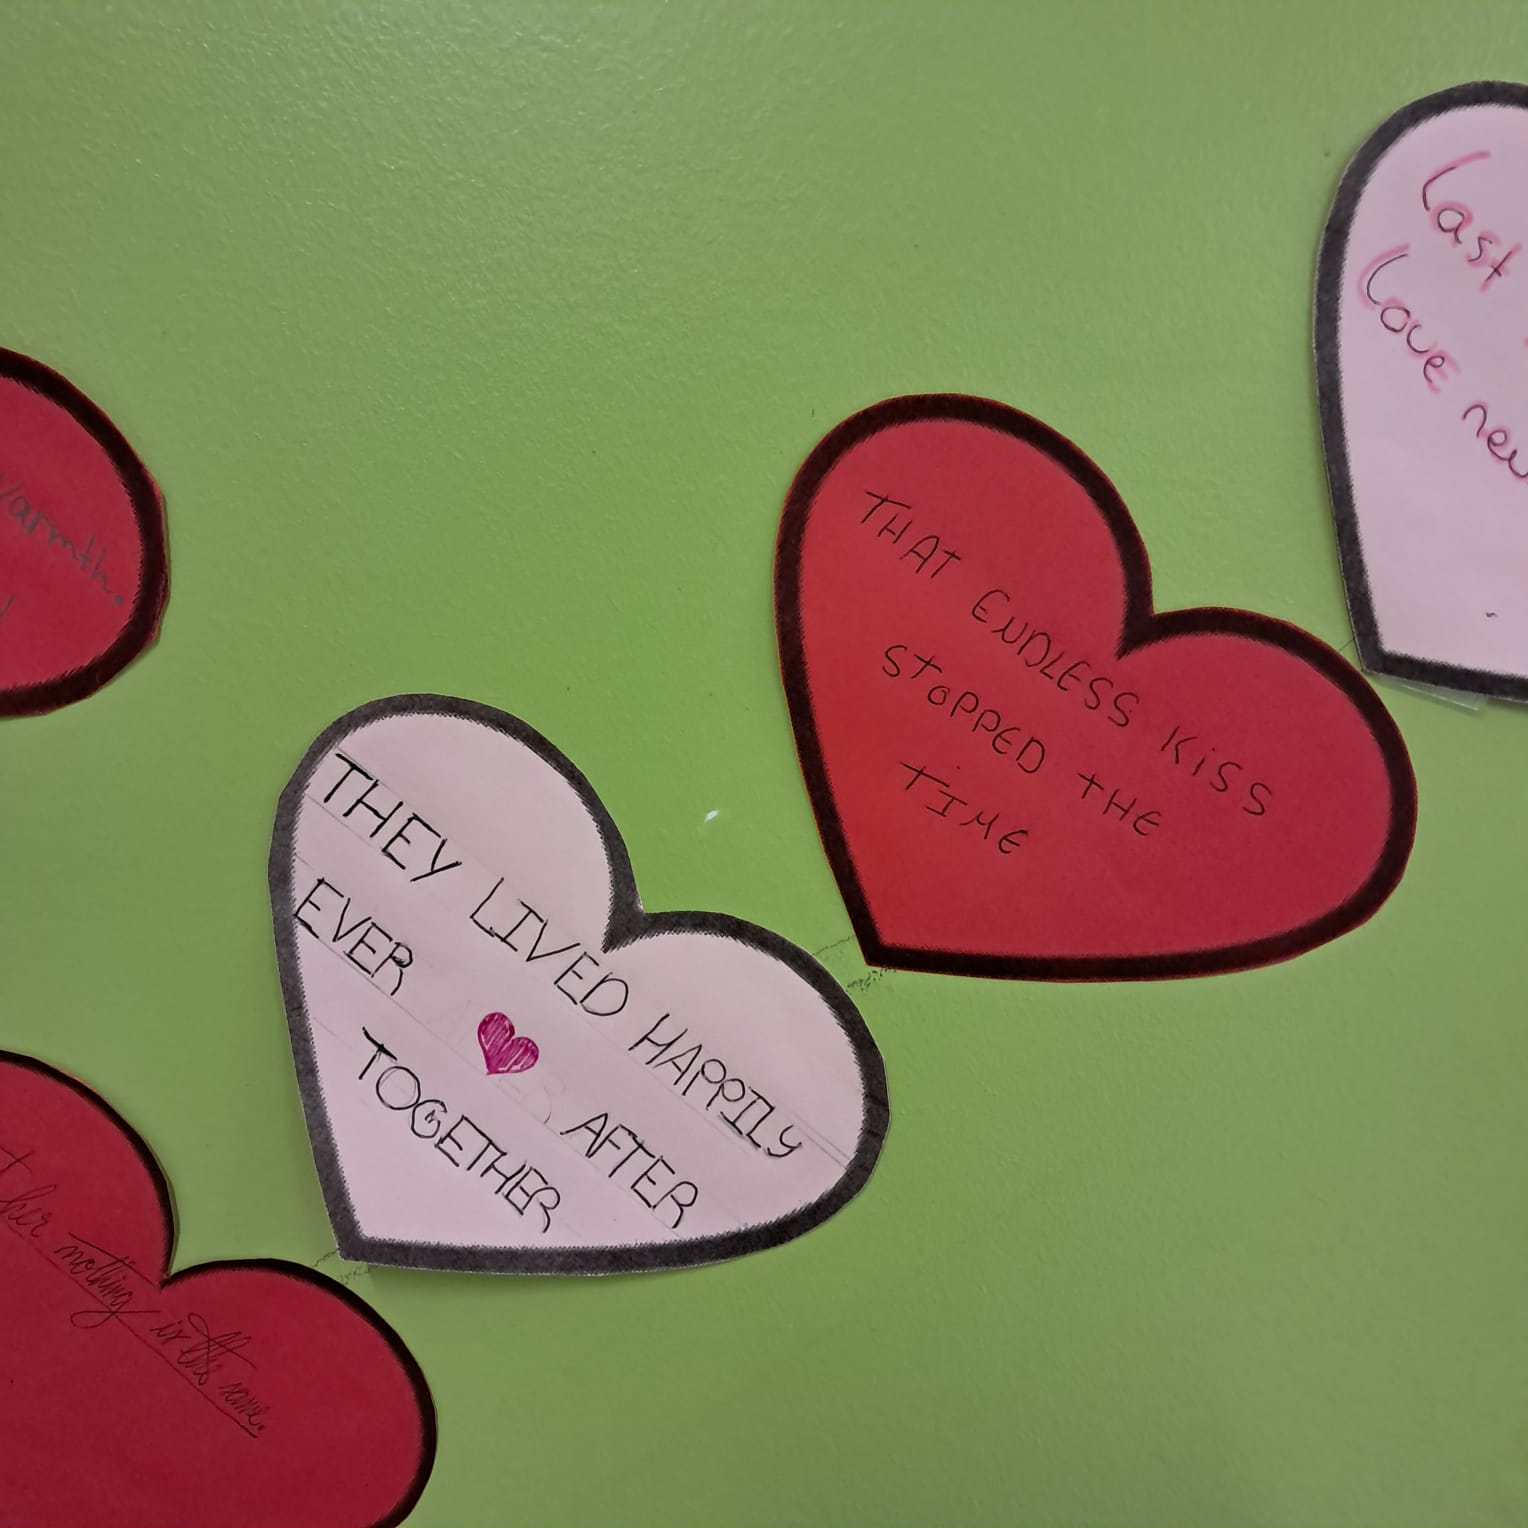 Last
Love
THAT ENDLESS KiSS
StOPPED tHE
TIME
THEY LIVED HAPPILY
EVER AFTER
TOGETHER
her nothing is the same.